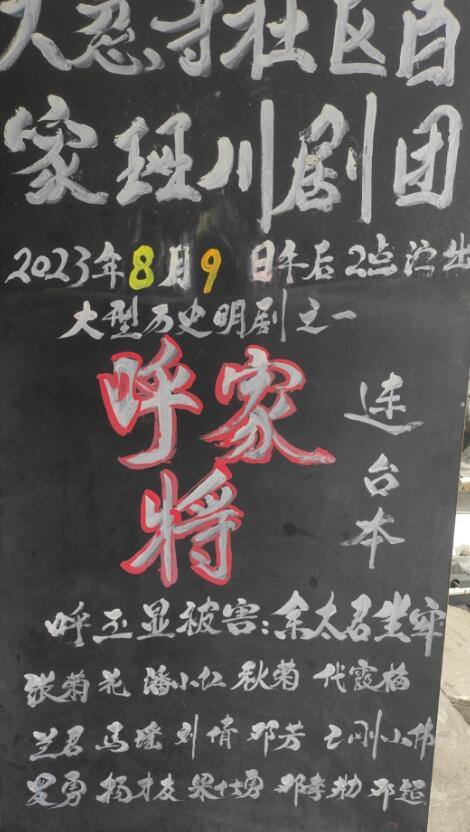 大忍寺社区百
家班川剧团
2023年8月9日午后2点演出
大型历史明剧之一
呼家
将
连台本
呼丕显被害:余太君坐牢
张菊花 潘小红 秋菊 代霞梅
兰君 马瑶 刘倩 邓芳 刚 小伟
发勇 杨才友 邓孝勋 邓超